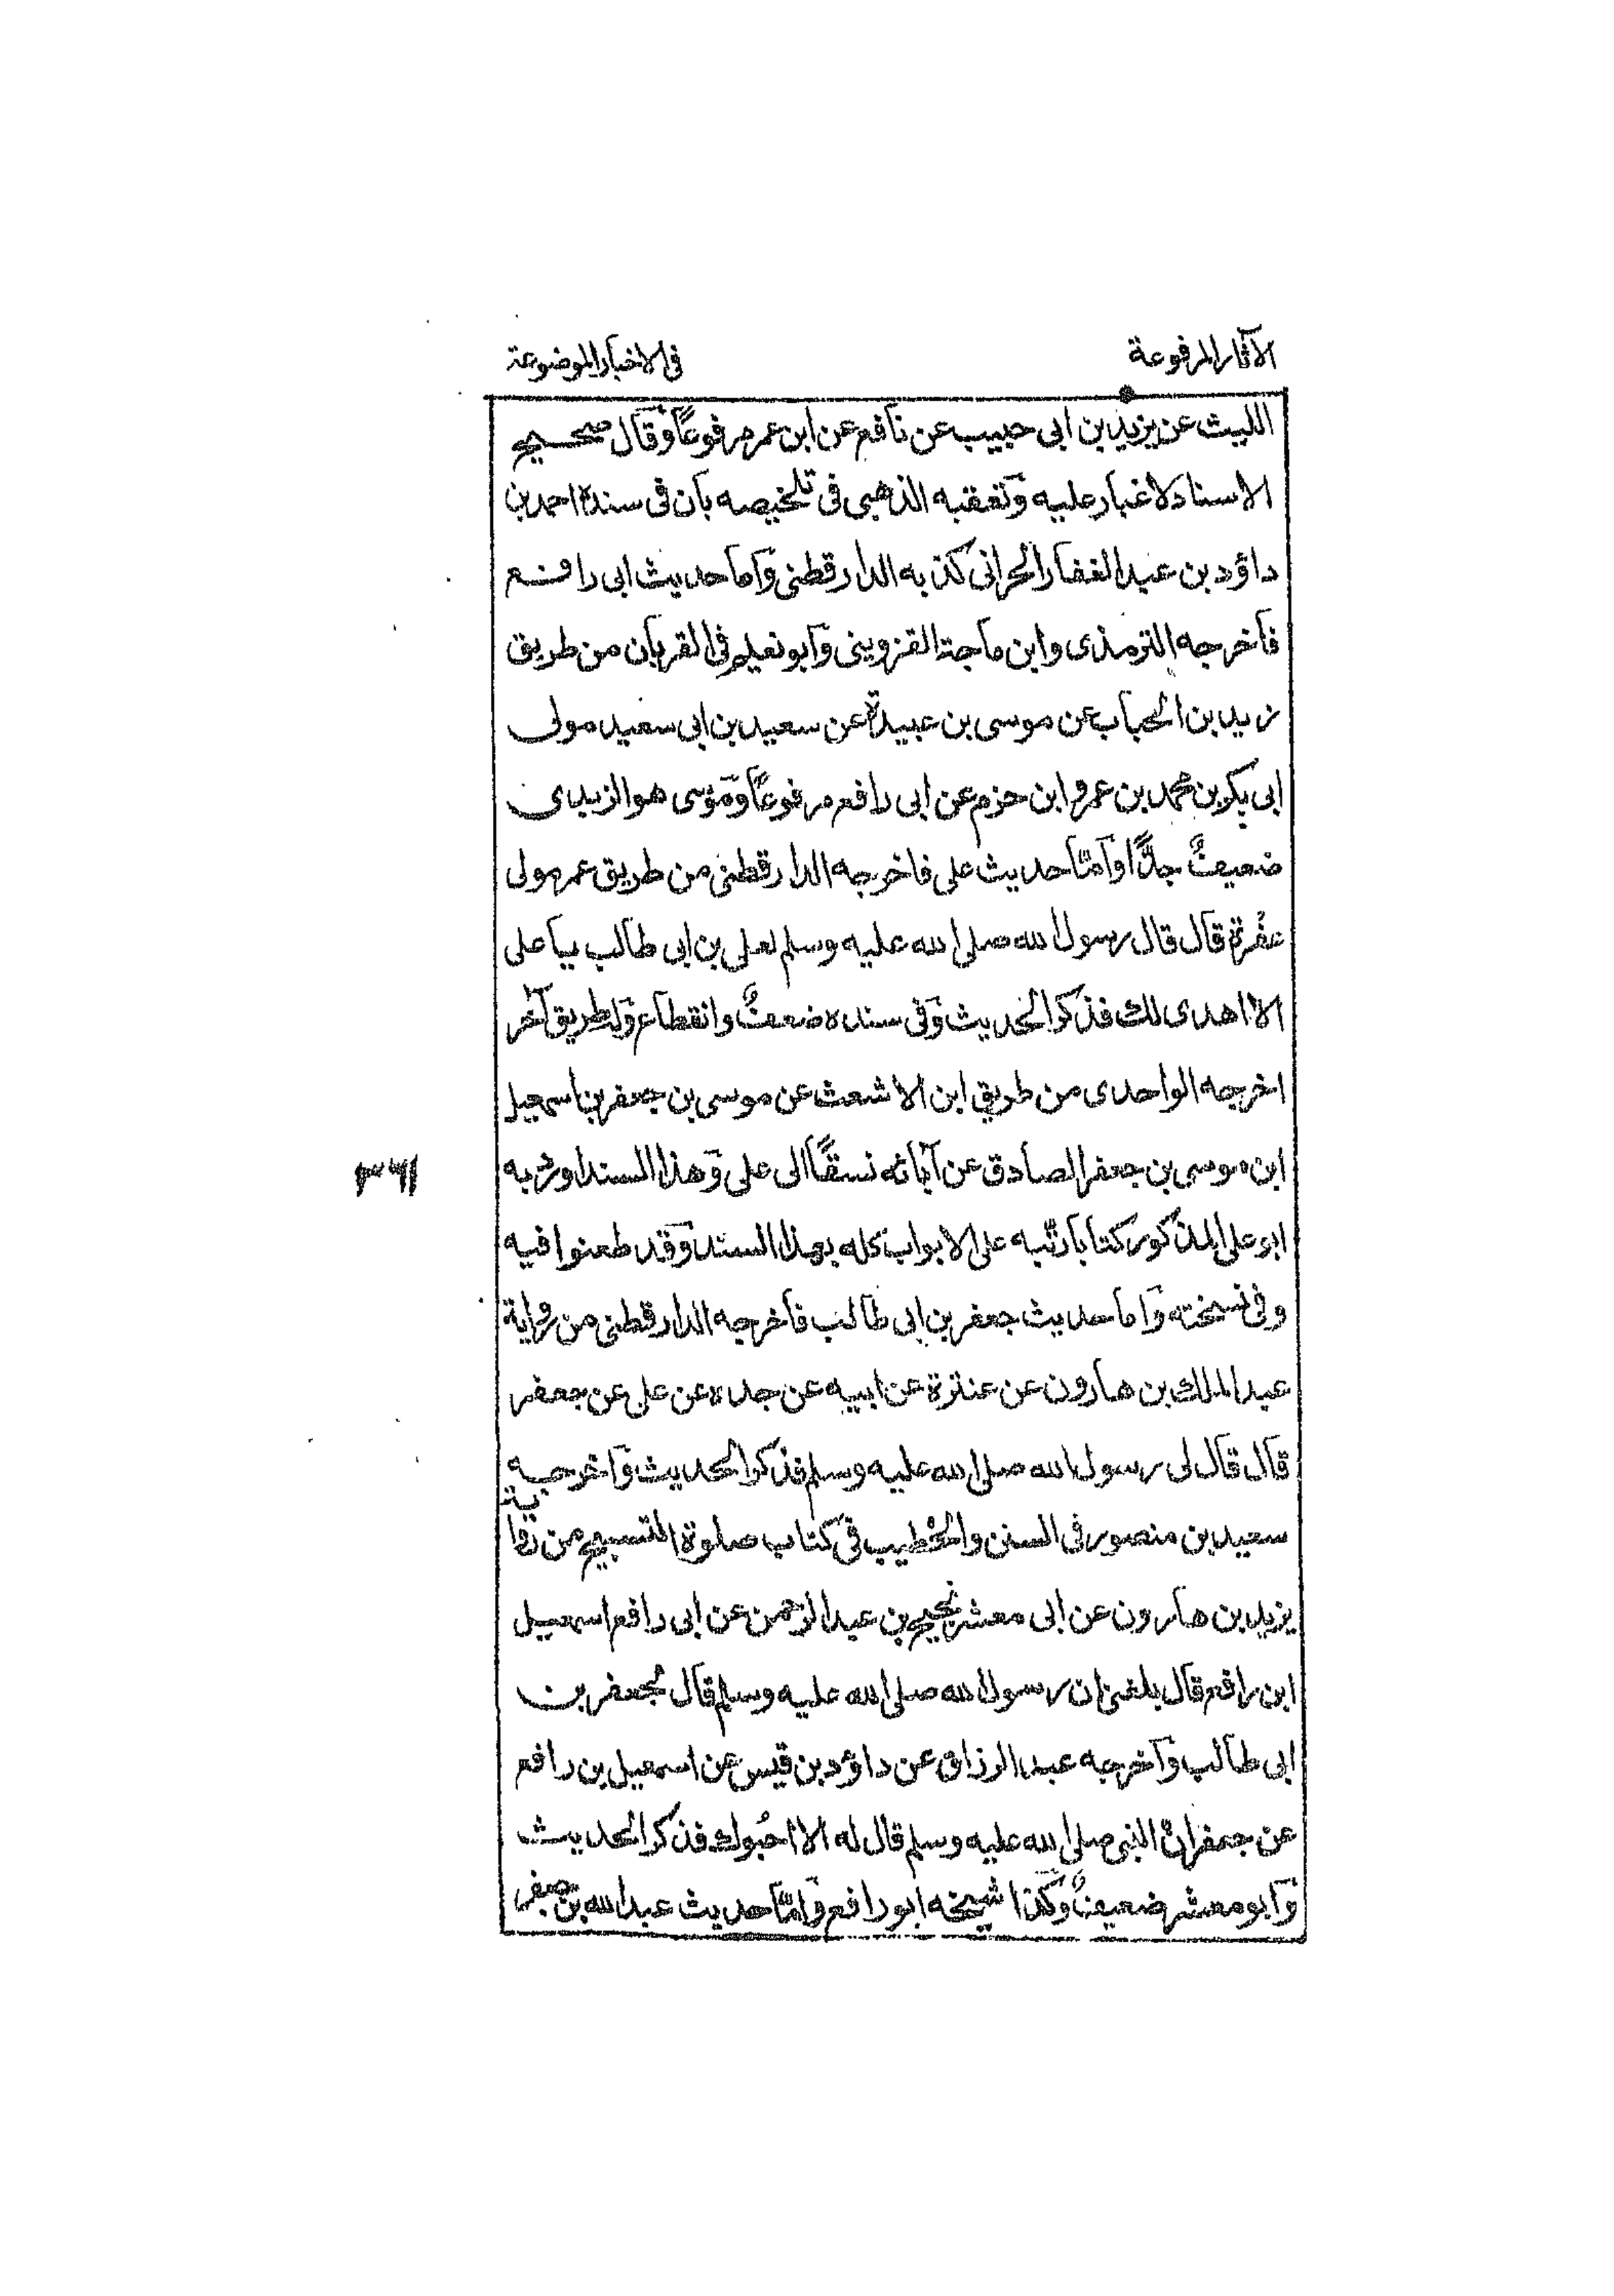 الآثار المرفوعة
فى الاخبار الموضوعة
الليث عن يزيد بن ابى حبيب عن نافع عن ابن عمر مرفوعًا وقال صحيح
الاسناد لا غبار عليه وتعقبه الذهبى فى تلخيصه بان فى سنده احمد بن
داؤد بن عبد الغفار الحرانى كذبه الدارقطنى واما حديث ابى رافع
فاخرجه الترمذى وابن ماجة القزوينى وابو نعيم فى القربان من طريق
زيد بن الحباب عن موسى بن عبيدة عن سعيد بن ابى سعيد مولى
ابى بكر بن محمد بن عمرو ابن حزم عن ابى رافع مرفوعًا وموسى هو الزبيدى
ضعيفٌ جدًّا وامّا حديث على فاخرجه الدارقطنى من طريق عمر مولى
عفرة قال قال رسول الله صلى الله عليه وسلم لعلى بن ابى طالب يا على
الا اهدى لك فذكر الحديث وفى سنده ضعفٌ وانقطاع وله طريق آخر
اخرجه الواحدى من طريق ابن الاشعث عن موسى بن جعفر بن اسمعيل
ابن موسى بن جعفر الصادق عن آبائه نسقًا الى على وهذا السند اورد به
ابو على المذكور كتابا رتّبه على الابواب كله بهذا السند وقد طعنوا فيه
وفى نسخته واما حديث جعفر بن ابى طالب فاخرجه الدارقطنى من رواية
عبد الملك بن هارون عن عنترة عن ابيه عن جده عن على عن جعفر
قال قال لى رسول الله صلى الله عليه وسلم فذكر الحديث واخرجه
سعيد بن منصور فى السنن والخطيب فى كتاب صلوة التسبيح من رواية
يزيد بن هارون عن ابى معشر نجيح بن عبد الرحمن عن ابى رافع اسمعيل
ابن رافع قال بلغنى ان رسول الله صلى الله عليه وسلم قال لجعفر بن
ابى طالب واخرجه عبد الرزاق عن داؤد بن قيس عن اسمعيل بن رافع
عن جعفر انّ النبى صلى الله عليه وسلم قال له الا احبوك فذكر الحديث
وابو معشر ضعيفٌ وكذا شيخه ابو رافع وامّا حديث عبد الله بن جعفر